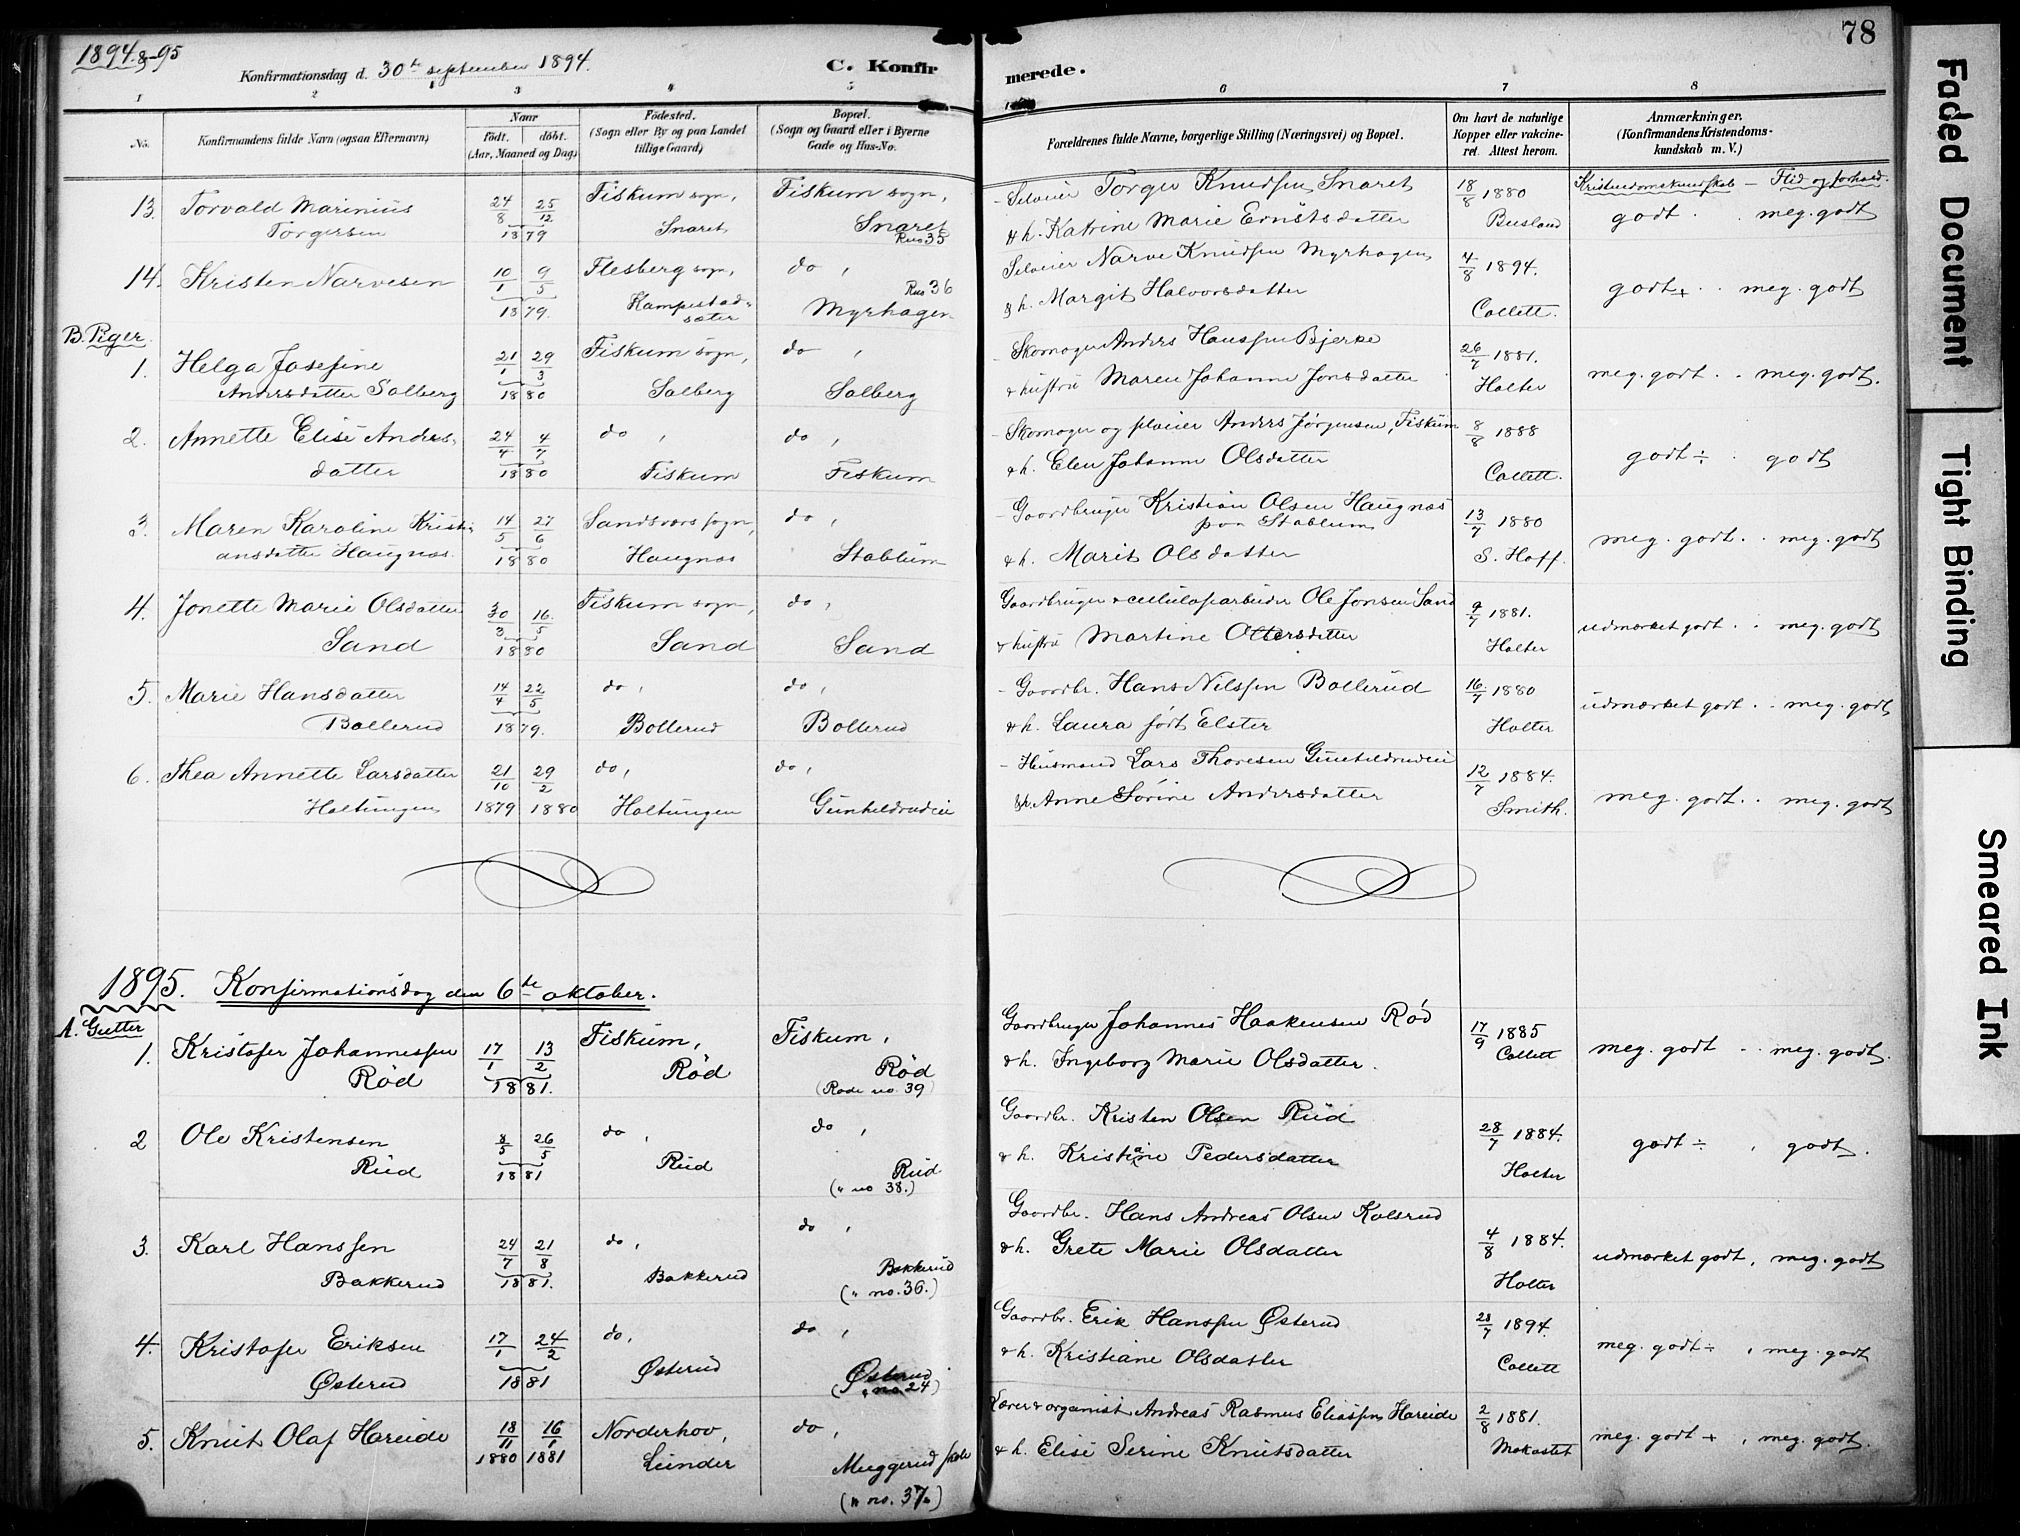 1894 & 95
Konfirmationsdag d. 30te september 1894.
C. Konfirmerede.
78
1 2 3 4 5 6 7 8
No.
Konfirmandens fulde Navn (ogsaa Efternavn)
Naar født. døbt. (Aar, Maaned og Dag)
Fødested. (Sogn eller By og paa Landet tillige Gaard)
Bopæl. (Sogn og Gaard eller i Byerne Gade og Hus-No.
Forældrenes fulde Navne, borgerlige Stilling (Næringsvei) og Bopæl.
Om havt de naturlige Kopper eller vakcineret. Attest herom.
Anmærkninger. (Konfirmandens Kristendomskundskab m.V.)
Kristendomskundskab – Flid og forhold.
13. Torvald Marinius 24/8 25/12 Fiskum sogn, Fiskum sogn, Selveier Torger Knudsen Snaret 18/8 1880
Torgersen 1879 Snaret Snaret & h. Katrine Marie Ernstsdatter Busland godt . . meg. godt
Rno 35
14. Kristen Narvesen 10/1 9/5 Flesberg sogn, do, Selveier Narve Knudsen Myrhagen 4/8 1894.
1879. Kampestadsæter Rno 36 Myrhagen & h. Margit Halvorsdatter Collett. godt + . . meg. godt
B. Piger.
1. Helga Josefine 21/1 29/3 Fiskum sogn, do, Skomager Anders Hanssen Bjerke 26/7 1881.
Andersdatter Solberg 1880 Solberg Solberg & hustru Maren Johanne Jonsdatter Holter meg. godt . . meg. godt.
2. Annette Elise Anders- 24/4 4/7 do, do, Skomager og pleier Anders Jørgensen, Fiskum 8/8 1888
datter 1880 Fiskum Fiskum & h. Elen Johanne Olsdatter Collett. godt ÷ . godt
3. Maren Karoline Kristi- 14/5 27/6 Sandsværs sogn, do, Gaardbruger Kristian Olsen Haugnæs paa Stablum 13/7 1880
ansdatter Haugnæs. 1880 Haugnæs Stablum & h. Marit Olsdatter S. Hoff. meg. godt . . meg. godt
4. Jonette Marie Olsdatter 30/3 16/5 Fiskum sogn, do, Gaardbruger & cellulosarbeider Ole Jonsen Sand 9/7 1881.
Sand 1880 Sand Sand & hustru Martine Ottersdatter Holter udmærket godt . . meg. godt
5. Marie Hansdatter 14/4 22/5 do, do, Gaardbr. Hans Nilssen Bollerud 16/7 1880
Bollerud 1879. Bollerud Bollerud & h. Laura født Elster Holter udmærket godt . . meg. godt
6. Thea Annette Larsdatter 21/10 29/2 do, do, Husmand Lars Thoresen Gunhildrudeie 12/7 1884.
Holtungen 1879 1880 Holtungen Gunhildrudeie & h. Anne Sørine Andersdatter Smith. meg. godt . . meg. godt
1895. Konfirmationsdag den 6te oktober.
A. Gutter
1. Kristofer Johannessen 17/1 13/2 Fiskum, Fiskum, Gaardbruger Johannes Haakensen Rød 17/9 1885
Rød 1881. Rød Rød & h. Ingeborg Marie Olsdatter. Collett meg. godt – meg. godt.
(Rode no. 39)
2 Ole Kristensen 8/5 26/5 do, do, Gaardbr. Kristen Olsen Rud 28/7 1884.
Rud 1881 Rud Rud & h. Kristiane Pedersdatter Holter godt ÷ , godt.
(" no 38.)
3. Karl Hanssen 24/7 21/8 do, do, Gaardbr. Hans Andreas Olsen Kolsrud 4/8 1884.
Bakkerud 1881. Bakkerud Bakkerud & h. Grete Marie Olsdatter Holter udmærket godt, meg. godt
(" no. 36.)
4. Kristofer Eriksen 17/1 24/2 do, do, Gaardbr. Erik Hanssen Østerud 28/7 1894.
Østerud 1881 Østerud Østerud & h. Kristiane Olsdatter Collett meg. godt ÷ , meg. godt
(" no 24)
5. Knut Olaf Hareide 18/11 16/1 Norderhov, do, Lærer & organist Andreas Rasmus Eliassen Hareide 2/8 1881.
1880 1881 Lunder Muggerud skole & h. Elise Serine Knutsdatter meg. godt + , meg. godt.
(" no. 37.)
Faded Document
Tight Binding
Smeared Ink